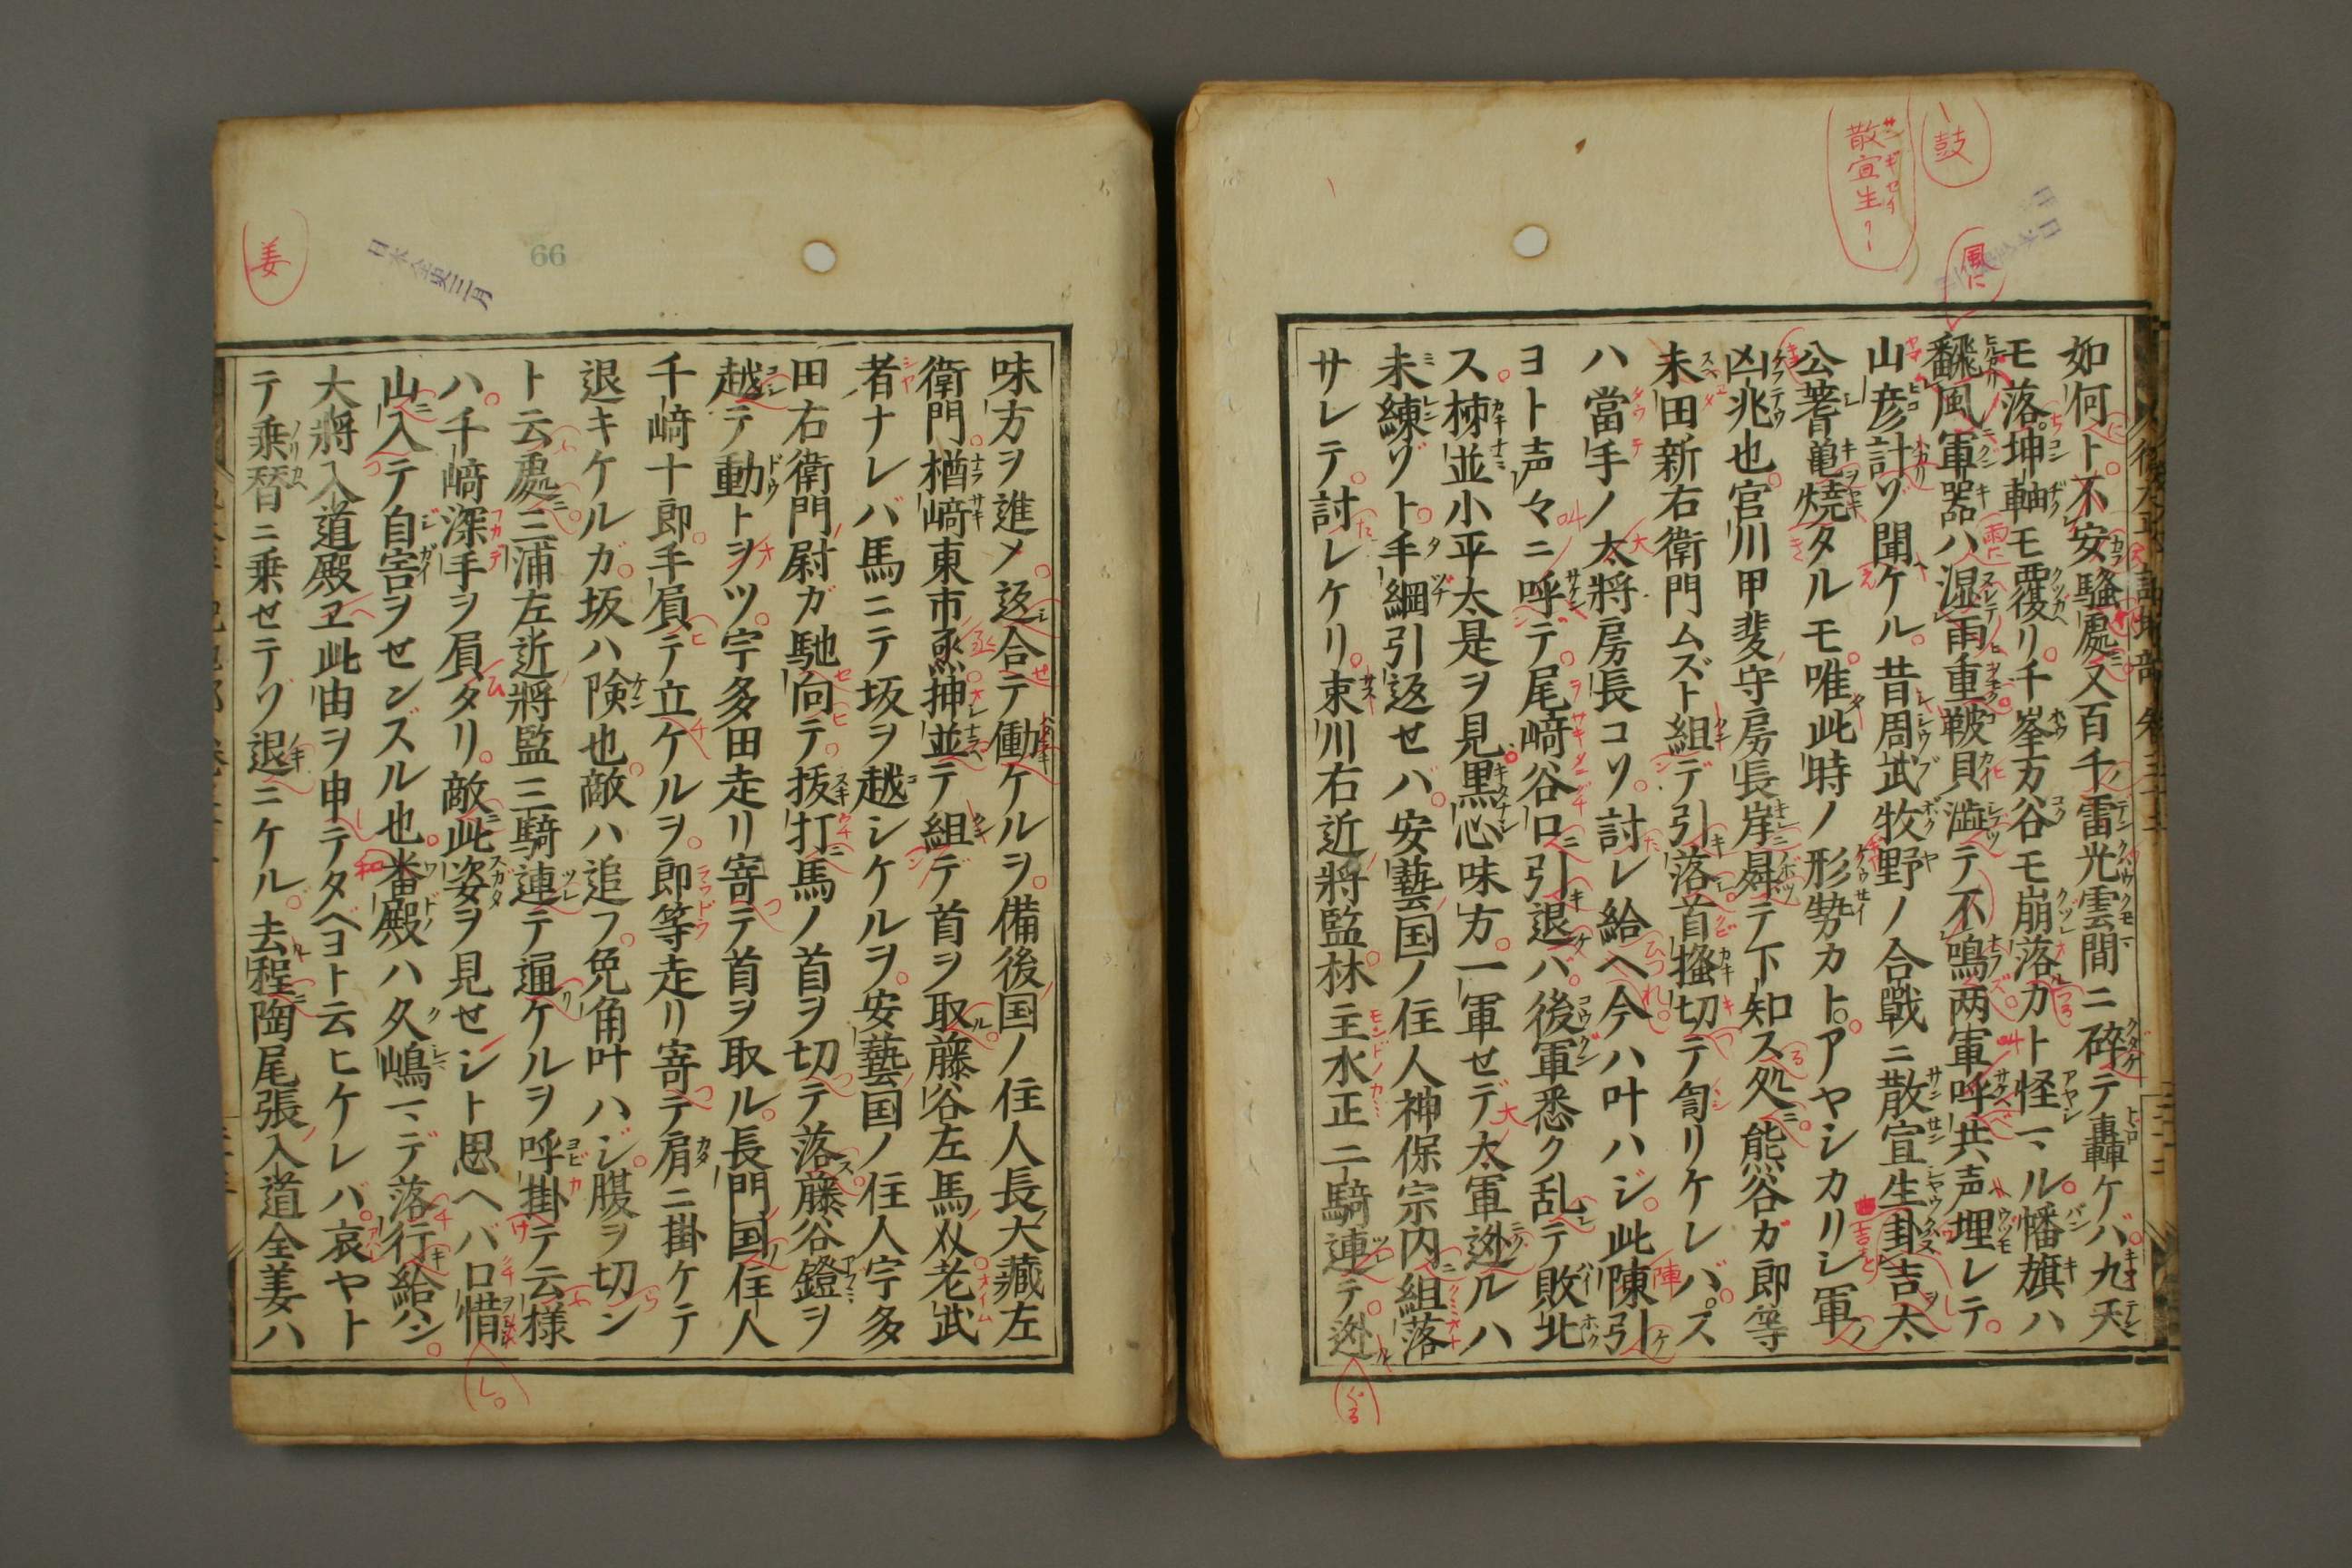 如何ト不安騒處又百千雷光雲間ニ碎テ轟ケバ九天
モ落坤軸モ覆リ千峯万谷モ崩落カト怪マル幡旗ハ
翻風軍器ハ湿雨重鞁貝澁テ不鳴两軍呼共声埋レテ
山彦計ゾ聞ケル昔周武牧野ノ合戰ニ散宜生卦吉太
公蓍亀焼タルモ唯此時ノ形勢カトアヤシカリシ軍
凶兆也官川甲斐守房長岸ニ舜テ下知ス処熊谷ガ郎等
未田新右衛門ムズト組デ引落首掻切テ匐リケレバス
ハ當手ノ太將房長コソ討レ給ヘ今ハ叶ハジ此陳引
ヨト声々ニ呼テ尾﨑谷口引退バ後軍悉ク乱テ敗北
ス柿並小平太是ヲ見黒心味方一軍セデ太軍迯ルハ
未練ゾト手綱引返セバ安藝国ノ住人神保宗内組落
サレテ討レケリ束川右近將監林主水正二騎連テ迯
味方ヲ進メ返合テ働ケルヲ備後国ノ住人長大藏左
衛門楢﨑東市烝抻並テ組デ首ヲ取藤谷左馬㕛老武
者ナレバ馬ニテ坂ヲ越シケルヲ安藝国ノ住人宇多
田右衛門尉ガ馳向テ抜打馬ノ首ヲ切テ落藤谷鐙ヲ
越テ動トヲツ宇多田走リ寄テ首ヲ取ル長門国住人
千﨑十郎手屓テ立ケルヲ郎等走リ寄テ肩ニ掛ケテ
退キケルガ坂ハ険也敵ハ追フ免角叶ハジ腹ヲ切ン
ト云處三浦左近將監三騎連テ遁ケルヲ呼掛テ云様
ハ千﨑深手ヲ屓タリ敵此姿ヲ見セシト思ヘバ口惜
山入テ自害ヲセンズル也番殿ハ久嶋マデ落行給ハン
大將入道殿ヱ此由ヲ申テタベヨト云ヒケレバ哀ヤト
テ乗替ニ乗セテゾ退ニケル去程陶尾張入道全姜ハ
鼓
散宜生
サンギセイ
風に
姜
66